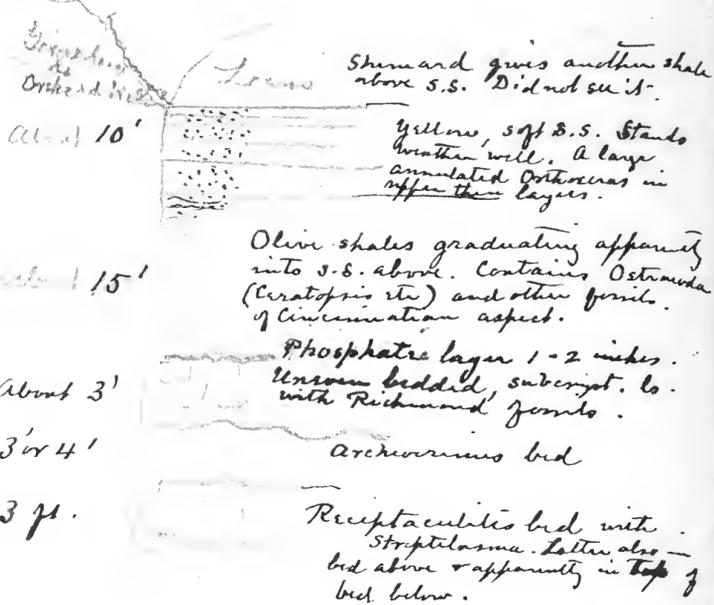 Orchard
Loess
Shumard gives another shale
above S.S. Did not see it.
About 10'
Yellow, soft S.S. Stands
weather well. A large
annulated Orthoceras in
upper thin layers.
Olive shales graduating apparently
into S.S. above. Contains Ostracoda
(Ceratopsis etc) and other fossils
of Cincinnatian aspect.
15'
Phosphatic layer 1-2 inches.
Uneven bedded, subcryst. ls.
with Richmond fossils.
About 3'
3' or 4'
Archiocrinus bed
3 ft.
Receptaculitis bed with
Streptelasma. Latter also —
bed above & apparently in top of
bed below.